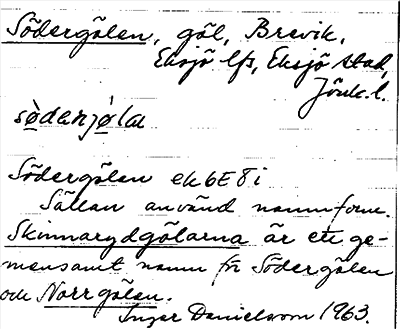 Södergölen, göl, Brevik,
Eksjö lfs, Eksjö stad,
Jönk. l.
Södergölen ek 6E 8 i
Sällan använd namnform.
Skinnarydgölarna är ett ge-
mensamt namn för Södergölen
och Norrgölen.
Inger Danielsson 1963.